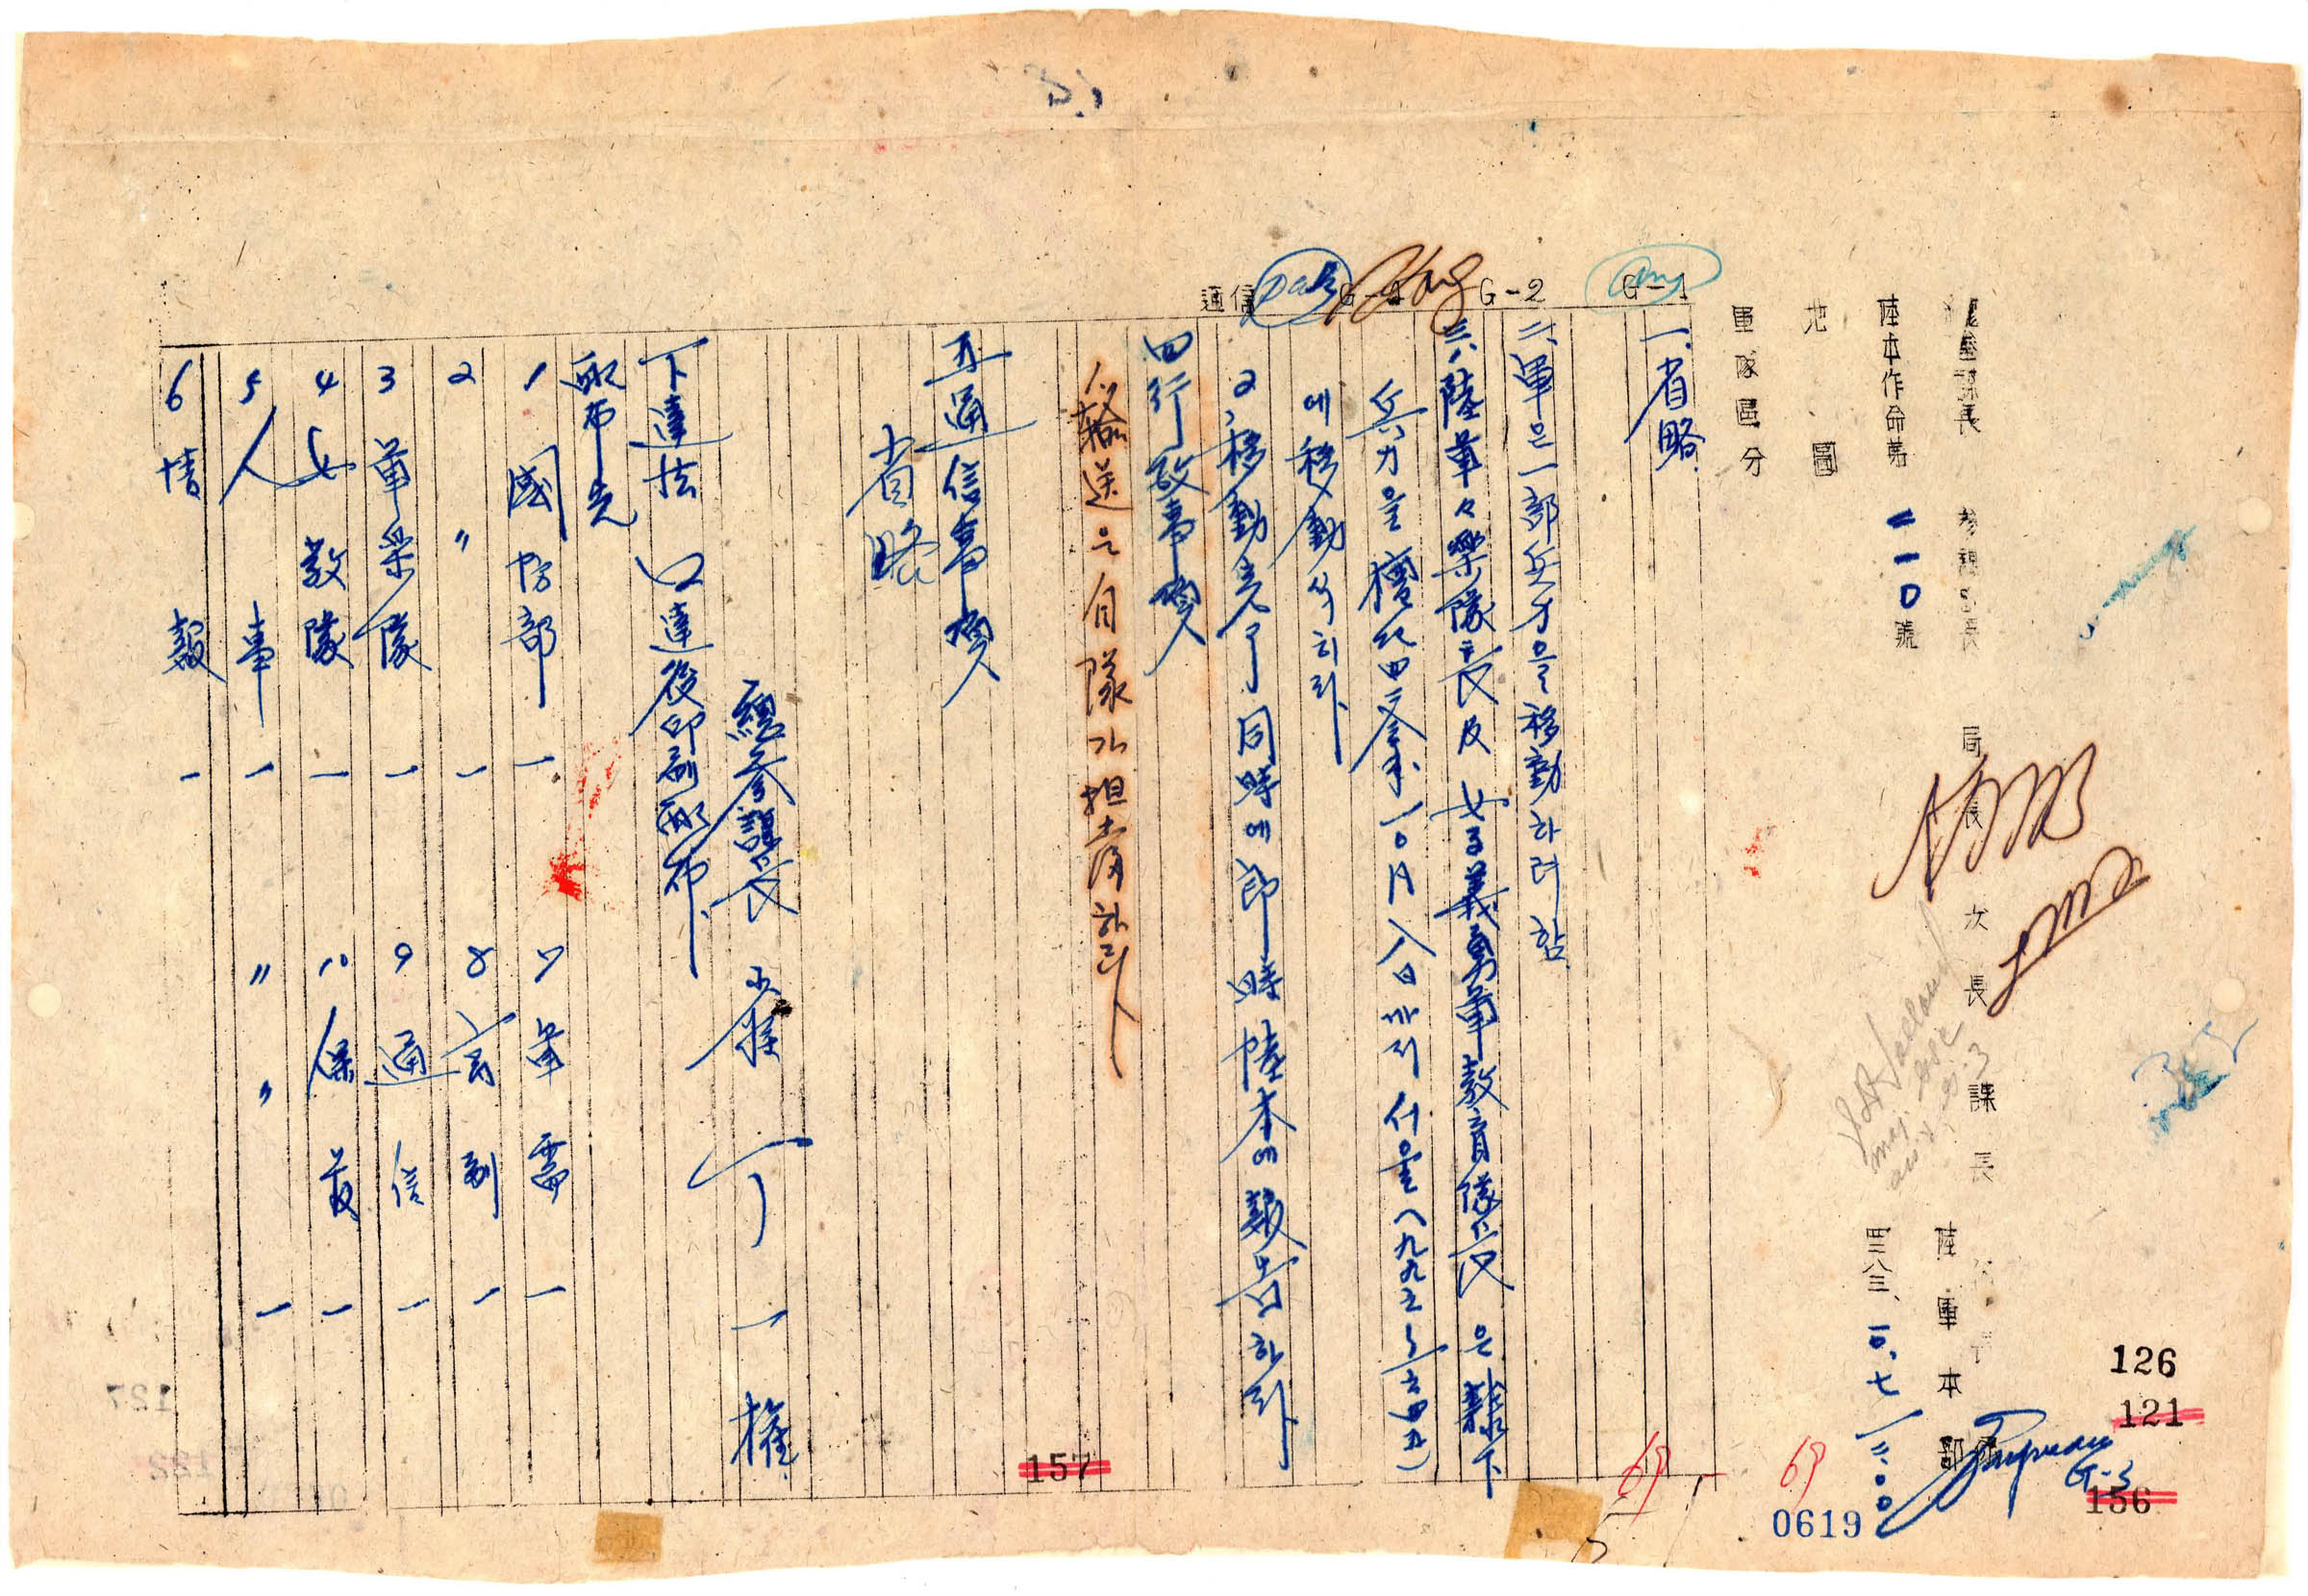 參謀長 局長 次長 課長
陸軍本部
陸本作命第 二一〇號
四二八三、一〇、七 一二:〇〇
地圖
軍隊區分
G-1
G-2
通信
一、省略
二、軍은 一部兵力을 移動하려함
三、陸軍々樂隊長 及 女子義勇軍敎育隊長 은 隷下
兵力을 檀紀四二八三年 一〇月 八日까지 서울
에 移動식히라
2、移動完了 同時에 即時 陸本에 報告하라
四 行政事項
1、輸送은 自隊가 担當하라
五 通信事項
省略
總參謀長 少將 丁一權
下達法 口達後印刷配布、
配布先
1 國防部 一
2 〃 一
3 軍樂隊 一
4 女敎隊 一
5 人事 一
6 情報 一
7 軍需 一
8 高副 一
9 通信 一
10 保存 一
〃 〃 一
G-3
126
121
156
157
69
69
0619
127